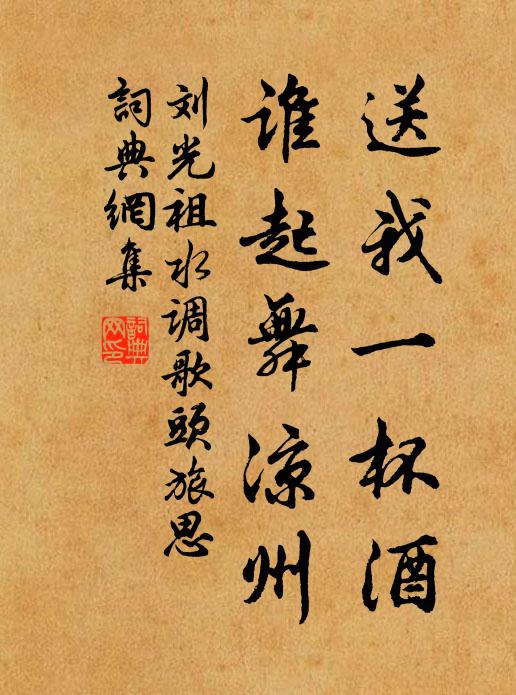 送我一杯酒
谁起舞凉州
刘光祖水调歌头旅思
詞典網集
詞典
网印